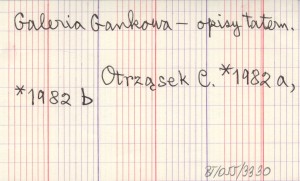 Galeria Gankowa – opisy tatern.
Otrząsek C. *1982 a,
*1982 b